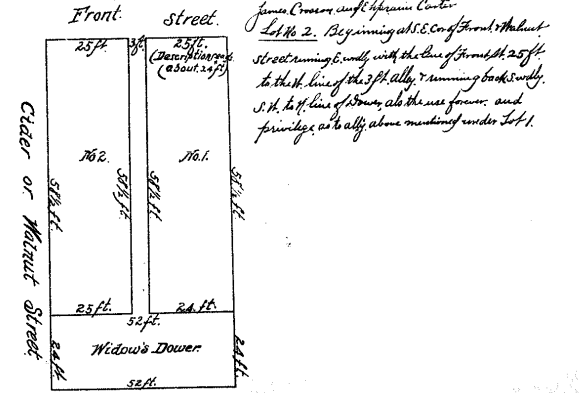 Front Street.
25ft. 3ft. 25ft.
(Description reads
(about 24ft)
Cider or Walnut Street.
No 2. No. 1.
58½ ft. 58½ ft. 58½ ft. 58½ ft.
25ft. 24 ft.
52ft.
24ft. Widow's Dower. 24ft.
52ft.
James Crosson, and Ephraim Carter
Lot No 2. Beginning at S.E. Cor of Front & Walnut
street running E. wdly with the line of Front St. 25 ft
to the W. line of the 3 ft. alley, & running back S. wdly.
S. W. to N. line of Dower, also the use forever and
privilege as to ally above mentioned under Lot 1.